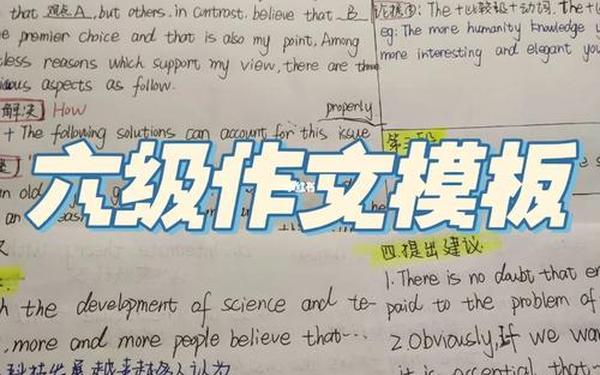 that 观点A, but others, in contrast, believe that B
e premier choice and that is also my point. Among
tless reasons which support my view, there are th
ious aspects as follow.
解决 How
properly
+ The following solutions can account for this issue
an old
an
h the development of science and te-
, more and more people believe that...
科技发展越来越多人认为
论据①: The +比较级+动词, The +
eg: The more humanity knowledge y
more interesting and elegant you
第三段
四.提出建议
1. There is no doubt that
paid to the problem of
2 Obviously, If we wan
it is essential that
六级作文模板
小红书